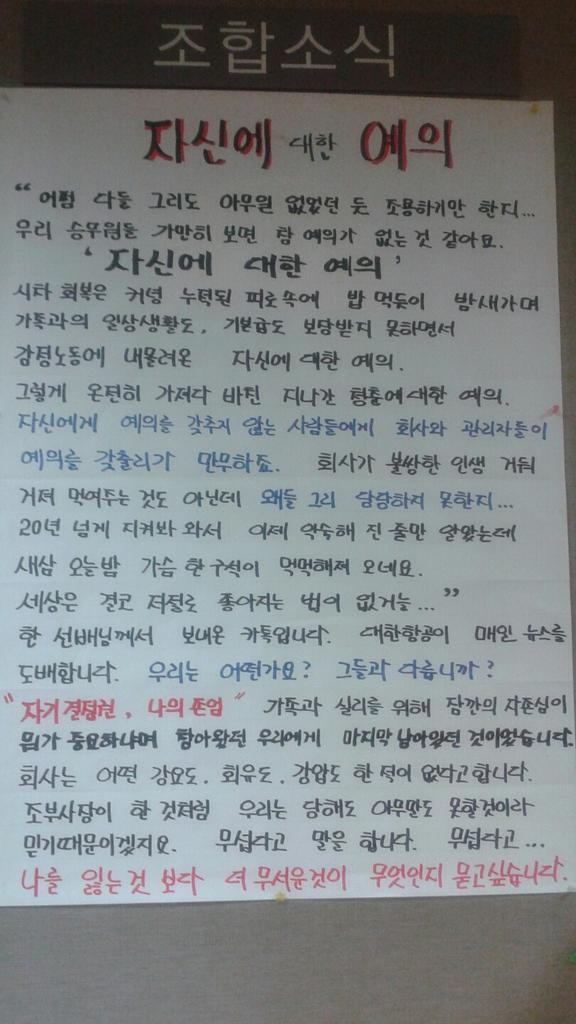 조합소식
자신에 대한 예의
“ 어쩜 다들 그리도 아무일 없었던 듯 조용하기만 한지...
우리 승무원들 가만히 보면 참 예의가 없는 것 같아요.
‘ 자신에 대한 예의 ’
시차 회복은 커녕 누적된 피로속에 밥 먹듯이 밤새가며
가족과의 일상생활도, 기본급도 보당받지 못하면서
감정노동에 내몰려온 자신에 대한 예의.
그렇게 온전히 가져다 바친 지나간 청춘에 대한 예의.
자신에게 예의를 갖추지 않는 사람들에게 회사와 관리자들이
예의를 갖출리가 만무하죠. 회사가 불쌍한 인생 거둬
거저 먹여주는 것도 아닌데 왜들 그리 당당하지 못한지...
20년 넘게 지켜봐 와서 이제 익숙해 진 줄만 알았는데
새삼 오늘밤 가슴 한구석이 먹먹해져 오네요.
세상은 결코 저절로 좋아지는 법이 없거늘...”
한 선배님께서 보내온 카톡입니다. 대한항공이 매일 뉴스를
도배합니다. 우리는 어떤가요? 그들과 다릅니까?
“자기결정권, 나의 존엄” 가족과 실리를 위해 잠깐의 자존심이
뭐가 중요하냐며 참아왔던 우리에게 마지막 남아있던 것이었습니다.
회사는 어떤 강요도, 회유도, 강압도 한 적이 없다고 합니다.
조부사장이 한 것처럼 우리는 당해도 아무말도 못할것이라
믿기때문이겠지요. 무섭다고 말을 합니다. 무섭다고...
나를 잃는것 보다 더 무서운것이 무엇인지 묻고싶습니다.